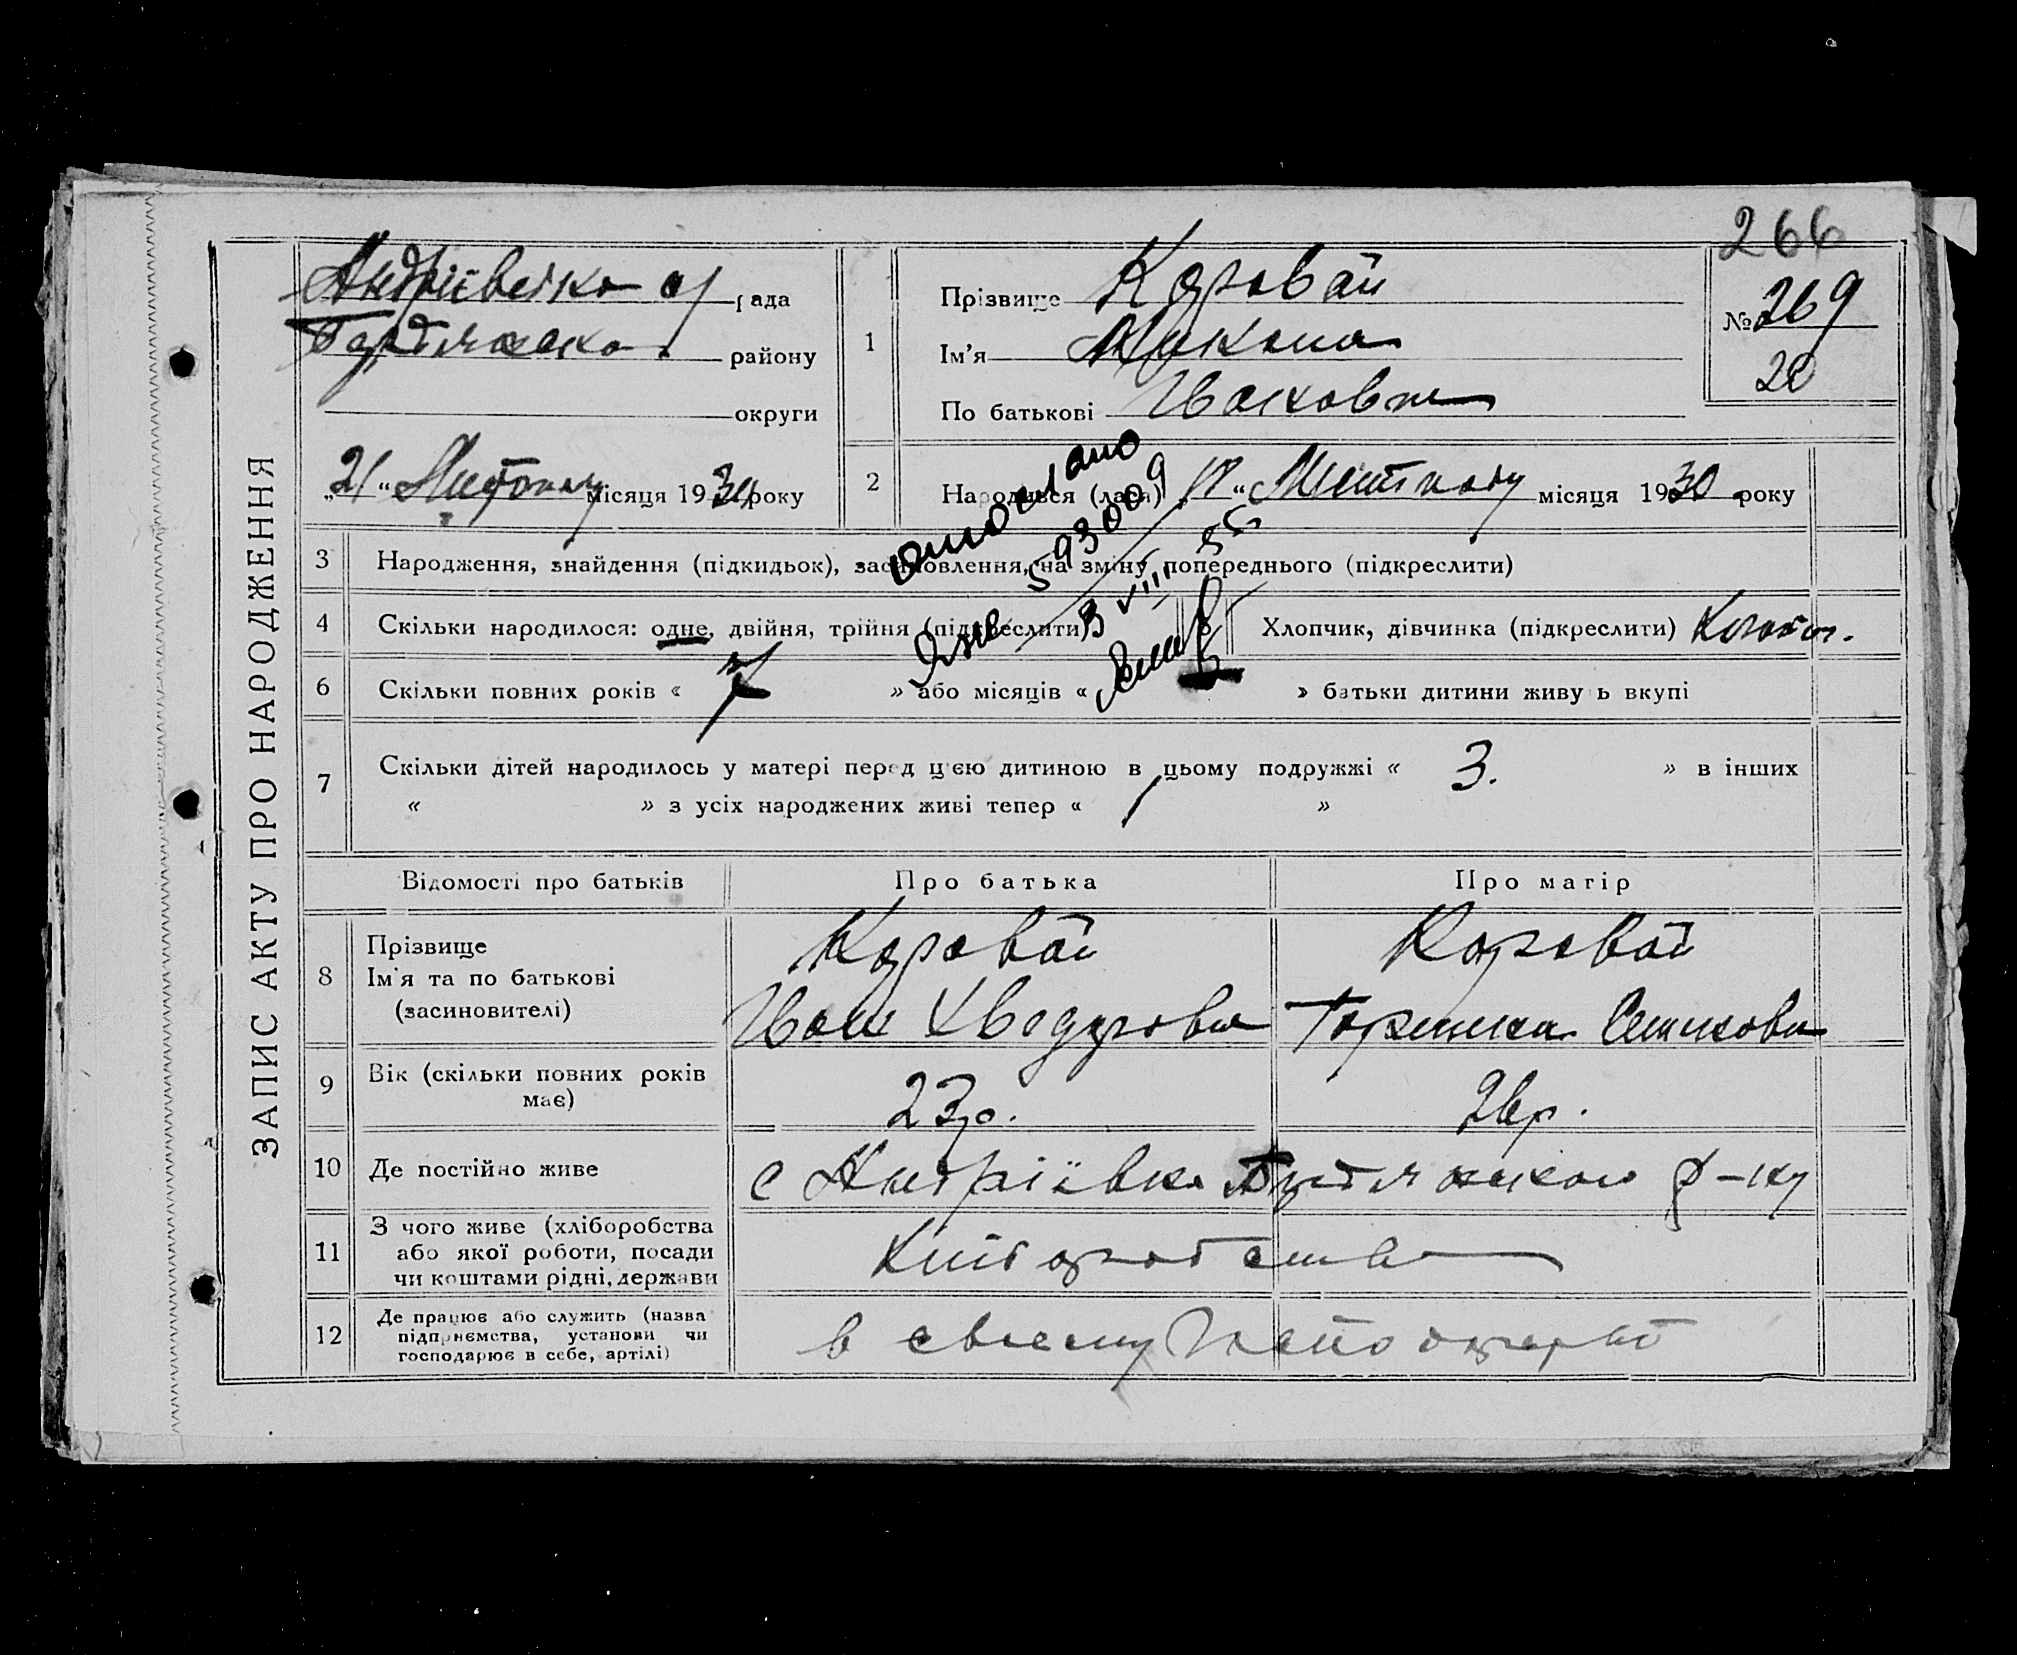 266
ЗАПИС АКТУ ПРО НАРОДЖЕННЯ
рада
району
округи
„21“ Листопаду місяця 1930 року
1
Прізвище Коровай
Ім'я Микола
По батькові Іванович
№ 269
20
2
Народився (лася) „ “ Листопаду місяця 1930 року
отослано
593009
VIII 55
3 Народження, знайдення (підкидьок), засиновлення, на зміну попереднього (підкреслити)
4 Скільки народилося: одне, двійня, трійня (підкреслити)
5 Хлопчик, дівчинка (підкреслити)
6 Скільки повних років « » або місяців « » батьки дитини живуть вкупі
7 Скільки дітей народилось у матері перед цією дитиною в цьому подружжі « 3. » в інших
« » з усіх народжених живі тепер « »
Відомості про батьків Про батька Про матір
8 Прізвище
Ім'я та по батькові
(засиновителі)
Коровай
Іван
Коровай
9 Вік (скільки повних років
має)
23 р. 26 р.
10 Де постійно живе
с Андріївка р-ну
11 З чого живе (хліборобства
або якої роботи, посади
чи коштами рідні, держави
Хліборобство
12 Де працює або служить (назва
підприємства, установи чи
господарює в себе, артілі)
в своєму